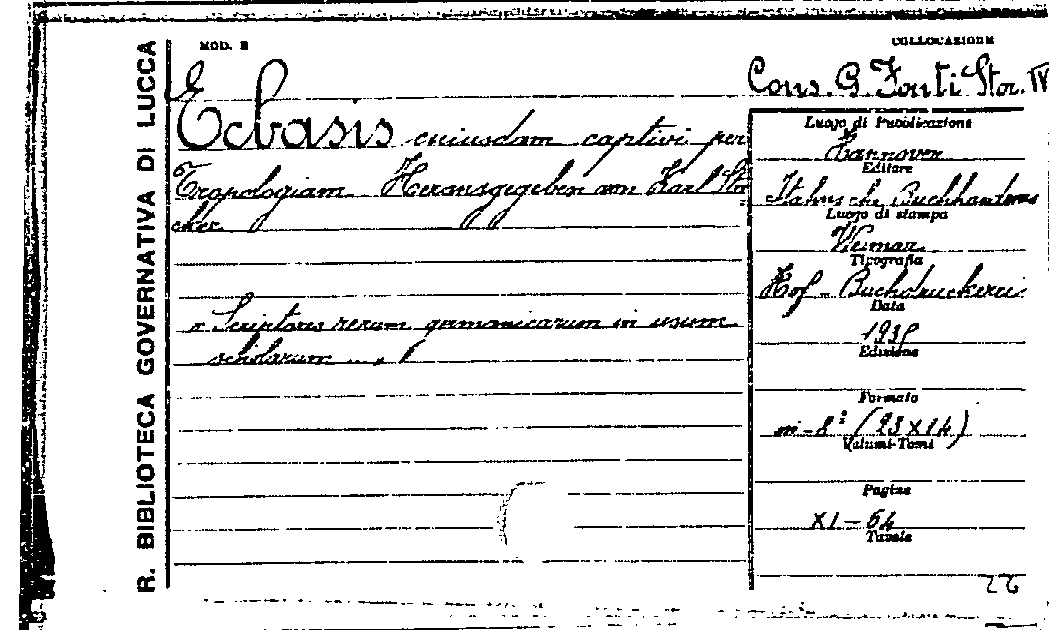 R. BIBLIOTECA GOVERNATIVA DI LUCCA
MOD. B
COLLOCAZIONE
Cons. G. Fonti Stor. IV
Ecbasis cuiusdam captivi per
Tropologiam. Herausgegeben von Karl Stre
cker
« Scriptores rerum germanicarum in usum
scholarum ...
Luogo di Pubblicazione
Hannover
Editore
Hahnsche Buchhandlung
Luogo di stampa
Weimar
Tipografia
Hof - Buchdruckerei
Data
1935
Edizione
Formato
in-8° (23x14)
Volumi-Tomi
Pagine
XI-64
Tavole